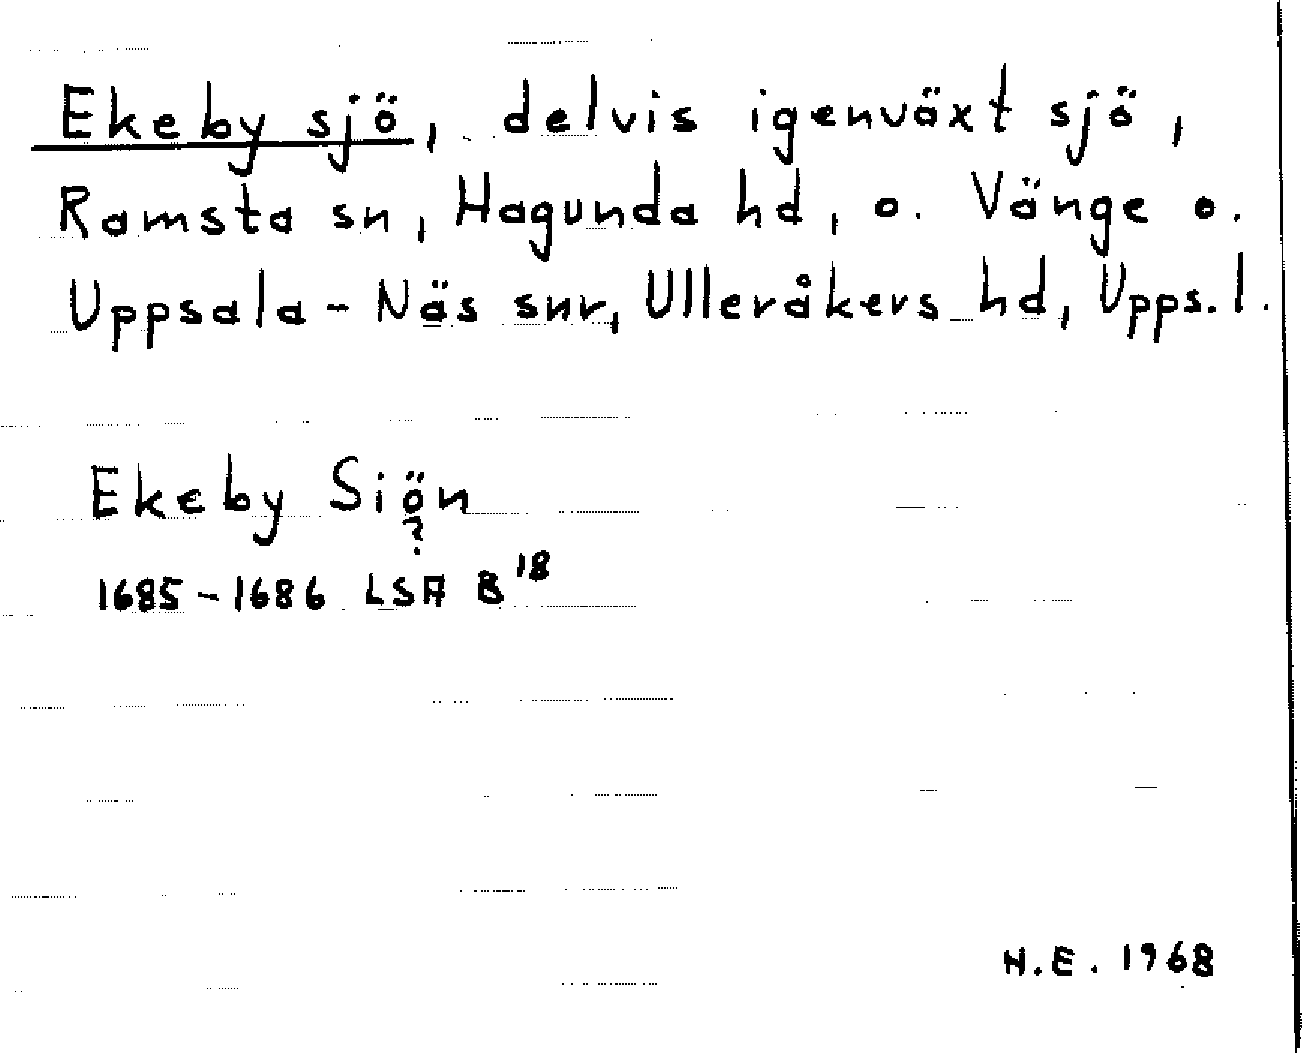 Ekeby sjö, delvis igenväxt sjö,
Ramsta sn, Hagunda hd, o. Vänge o.
Uppsala-Näs snr, Ulleråkers hd, Upps. l.
Ekeby Siön
?
1685-1686 LSA B 18
H.E. 1968